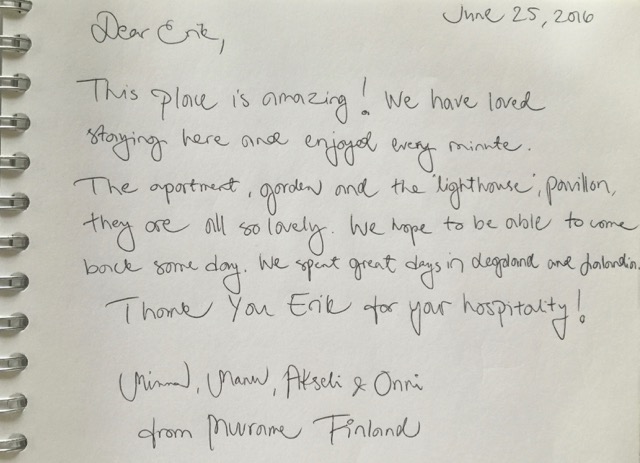 June 25, 2016
Dear Erik,
This place is amazing! We have loved
staying here and enjoyed every minute.
The apartment, garden and the 'lighthouse', pavillon,
they are all so lovely. We hope to be able to come
back some day. We spent great days in Legoland and
Thank You Erik for your hospitality!
Akseli & Onni
from Muurame Finland